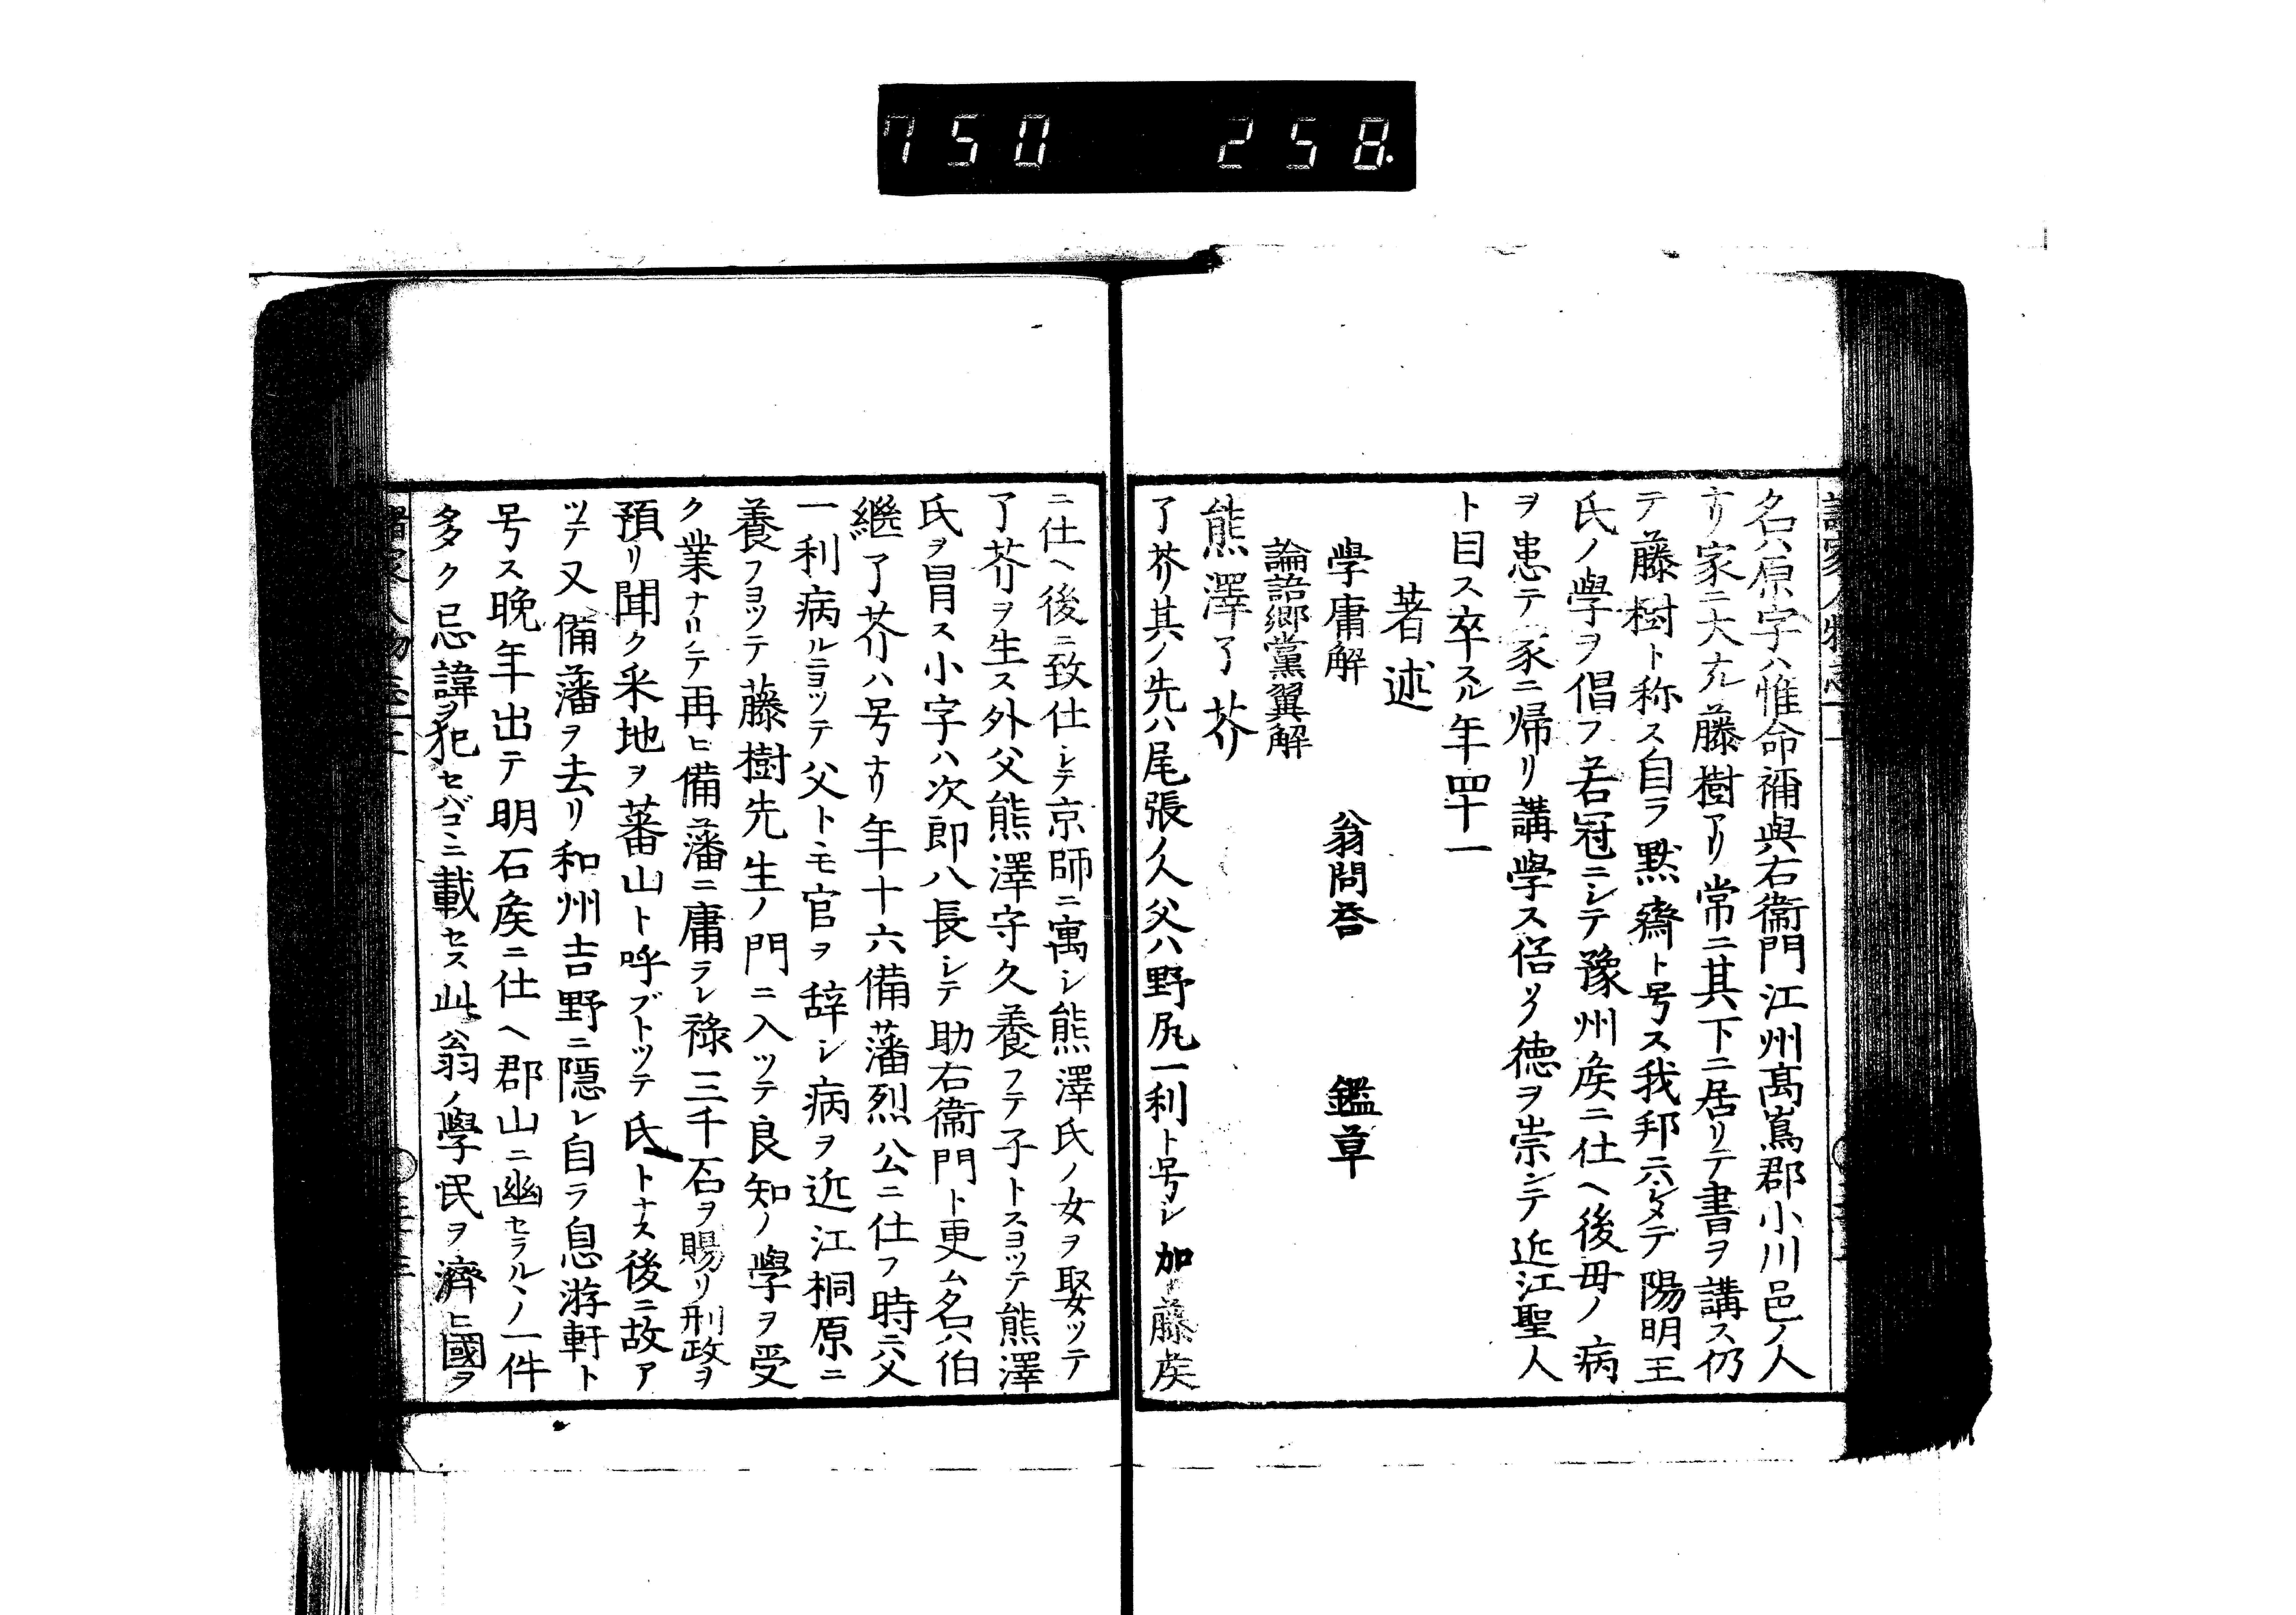 750 258.
名ハ原字ハ惟命禰與右衞門江州髙嶌郡小川邑ノ人
ナリ家ニ大ナル藤樹アリ常ニ其下ニ居リテ書ヲ講ス仍
テ藤樹ト称ス自ラ黙齋ト号ス我邦ニシテ陽明王
氏ノ學ヲ倡フ若冠ニシテ豫州矦ニ仕ヘ後毋ノ病
ヲ患テ家ニ帰リ講學ス德ヲ崇ンテ近江聖人
ト目ス卒スル年四十一
著述
學庸解 翁問荅 鑑草
論語郷黨翼解
熊澤了芥
了芥其ノ先ハ尾張ノ人父ハ野尻一利ト号シ加藤矦
ニ仕ヘ後ニ致仕シテ京師ニ寓シ熊澤氏ノ女ヲ娶ツテ
了芥ヲ生ス外父熊澤守久養フテ子トスヨツテ熊澤
氏ヲ冒ス小字ハ次郎八長シテ助右衞門ト更ム名ハ伯
繼了芥ハ号ナリ年十六備藩烈公ニ仕フ時ニ父
一利病ルニヨツテ父トモ官ヲ辞シ病ヲ近江桐原ニ
養フヨツテ藤樹先生ノ門ニ入ツテ良知ノ學ヲ受
ク業ナリテ再ヒ備藩ニ庸ラレ祿三千石ヲ賜リ刑政ヲ
預リ聞ク釆地ヲ蕃山ト呼ブトツテ氏トナス後ニ故ア
ツテ又備藩ヲ去リ和州吉野ニ隱レ自ラ息游軒ト
号ス晩年出テ明石矦ニ仕ヘ郡山ニ幽セラルヽノ一件
多ク忌諱ヲ犯セバコヽニ載セス此翁ノ學民ヲ濟ヒ國ヲ